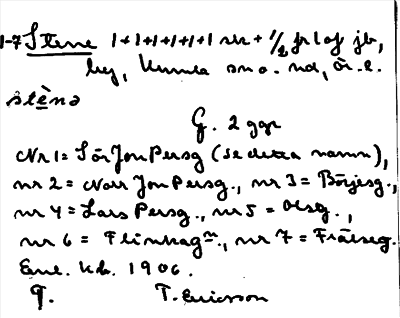 1-7 Stene 1+1+1+1+1+1 sk + 1/2 frlof jb,
by, Kumla sn o. hd, Ör. l.
stènə
G. 2 ggr
Nr 1 = Sör Jon Persg (se detta namn),
nr 2 = Norr Jon Persg., nr 3 = Börjesg.,
nr 4 = Lars Persg., nr 5 = Olsg.,
nr 6 = Flinkag^n., nr 7 = Frälseg.
Enl. kb. 1906.
T. Ericsson